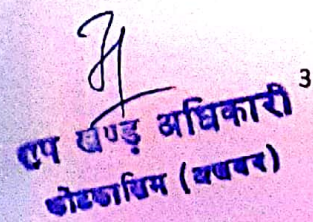 उप खण्ड़ अधिकारी 3
कोटकासिम (अलवर)